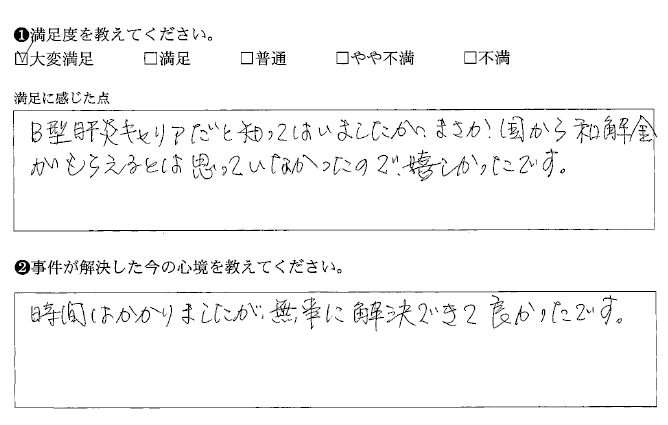 ❶満足度を教えてください。
☑大変満足 □満足 □普通 □やや不満 □不満
満足に感じた点
B型肝炎キャリアだと知ってはいましたが、まさか国から和解金
がもらえるとは思っていなかったので、嬉しかったです。
❷事件が解決した今の心境を教えてください。
時間はかかりましたが、無事に解決できて良かったです。